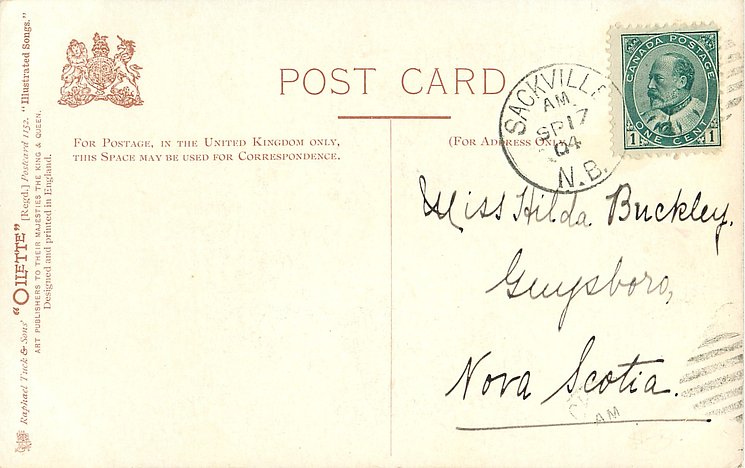 POST CARD
FOR POSTAGE, IN THE UNITED KINGDOM ONLY,
THIS SPACE MAY BE USED FOR CORRESPONDENCE.
(FOR ADDRESS ONLY.)
CANADA POSTAGE
1 ONE CENT 1
SACKVILLE
AM
SP 17
04
N.B.
Miss Hilda Buckley,
Guysboro,
Nova Scotia.
AM
Raphael Tuck & Sons' "OILETTE" [Regd.] Postcard 1152. "Illustrated Songs."
ART PUBLISHERS TO THEIR MAJESTIES THE KING & QUEEN.
Designed and printed in England.